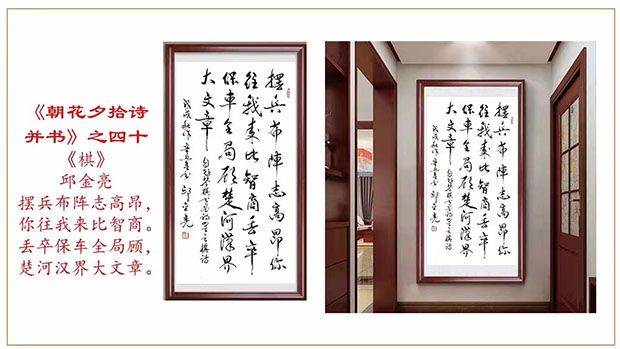 《朝花夕拾诗
并书》之四十
《棋》
邱金亮
摆兵布阵志高昂，
你往我来比智商。
丢卒保车全局顾，
楚河汉界大文章。
摆兵布陣志高昂你
往我来比智商丢卒
保車全局顾楚河漢界
大文章
摆兵布陣志高昂你
往我来比智商丢卒
保車全局顾楚河漢界
大文章